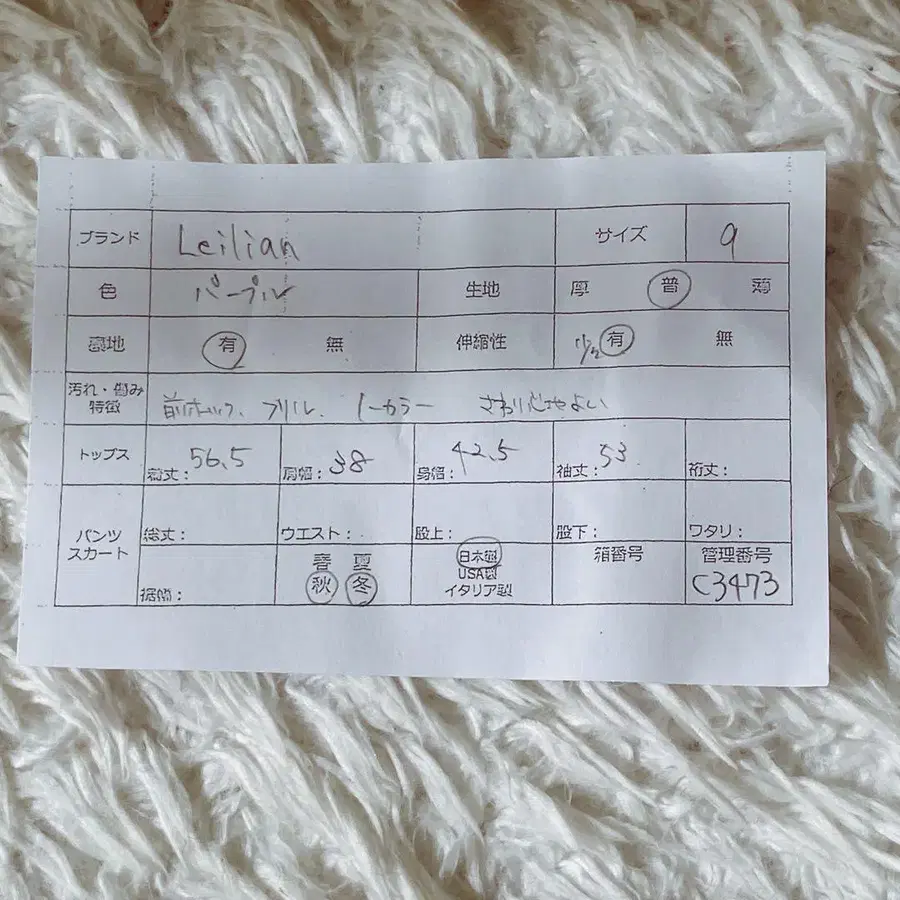 ブランド Leilian サイズ 9
色 パープル 生地 厚 普 薄
裏地 有 無 伸縮性 少々 有 無
汚れ・傷み
特徴 前ホック、フリル、ノーカラー さわり心地よい
トップス 着丈: 56.5 肩幅: 38 身幅: 42.5 袖丈: 53 裄丈:
パンツ
スカート 総丈: ウエスト: 股上: 股下: ワタリ:
裾幅: 春 夏 秋 冬 日本製 USA製 イタリア製 箱番号 管理番号
C3473